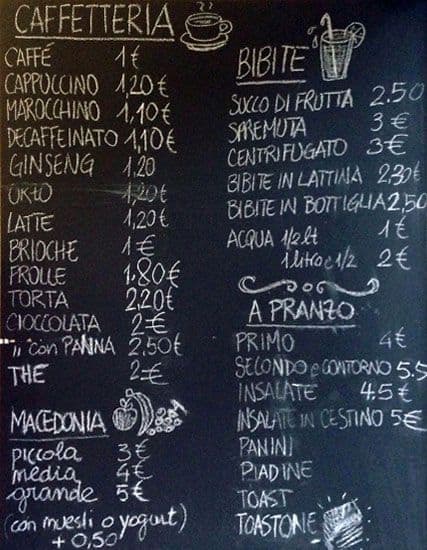 CAFFETTERIA
CAFFÉ 1€
CAPPUCCINO 1,20€
MAROCCHINO 1,10€
DECAFFEINATO 1,10€
GINSENG 1.20
ORZO 1,20€
LATTE 1,20€
BRIOCHE 1€
FROLLE 1.80€
TORTA 2,20€
CIOCCOLATA 2€
" con PANNA 2,50€
THE 2€
MACEDONIA
piccola 3€
media 4€
grande 5€
(con muesli o yogurt)
+ 0,50
BIBITE
SUCCO DI FRUTTA 2.50
SPREMUTA 3€
CENTRIFUGATO 3€
BIBITE IN LATTINA 2,30€
BIBITE IN BOTTIGLIA 2,50
ACQUA 1/2 lt 1€
1 litro e 1/2 2€
A PRANZO
PRIMO 4€
SECONDO e CONTORNO 5.5
INSALATE 4.5€
INSALATE IN CESTINO 5€
PANINI
PIADINE
TOAST
TOASTONE